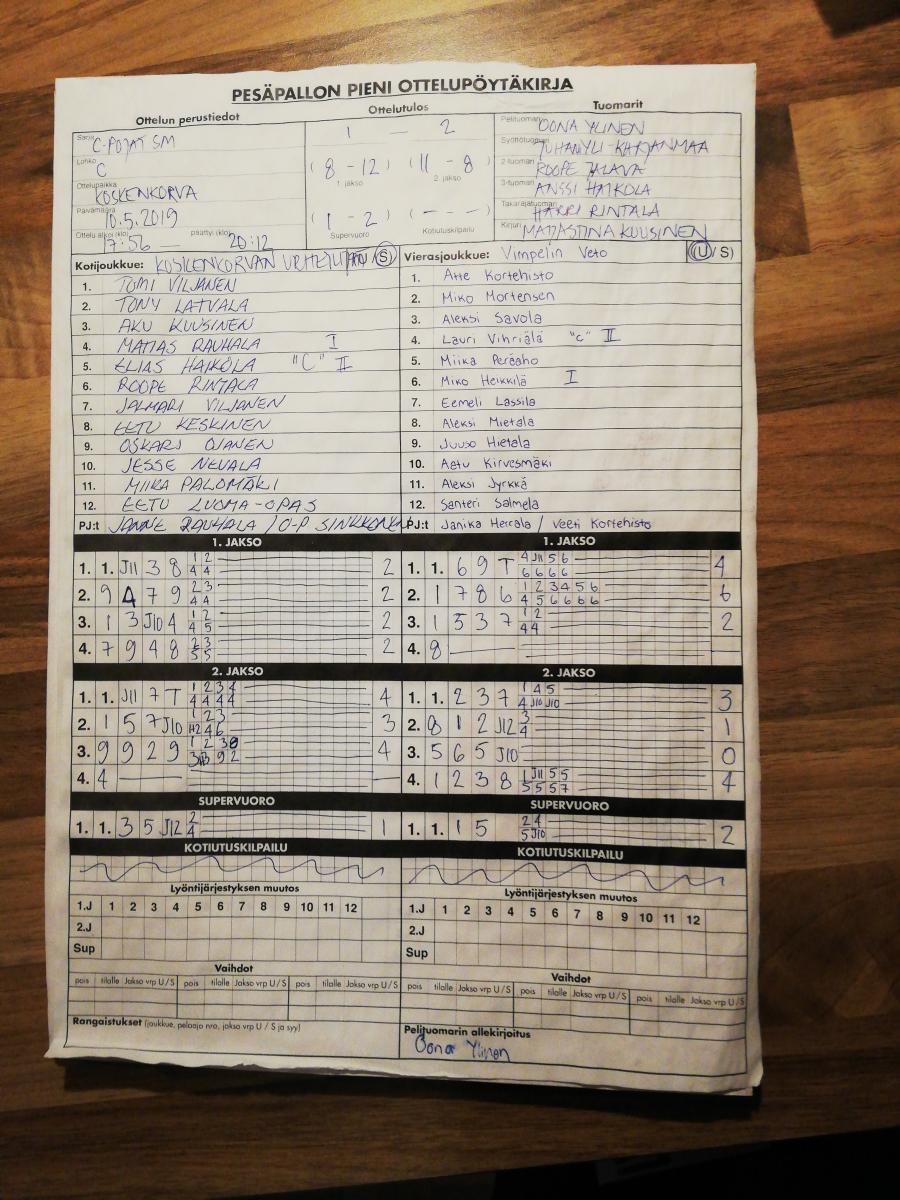 PESÄPALLON PIENI OTTELUPÖYTÄKIRJA
Ottelun perustiedot
Ottelutulos
Tuomarit
Sarja C-POJAT SM
Lohko C
Ottelupaikka KOSKENKORVA
Päivämäärä 10.5.2019
Ottelu alkoi (klo) 17:56 — päättyi (klo) 20:12
1 — 2
(8 - 12) (11 - 8)
1. jakso 2. jakso
(1 - 2) (- - -)
Supervuoro Kotiutuskilpailu
Pelituomari OONA YLINEN
Syöttötuomari JUHA YLI-KARJANMAA
2-tuomari ROOPE JALAVA
3-tuomari ANSSI HAIKOLA
Takarajatuomari HARRI RINTALA
Kirjuri MATIASTINA KUUSINEN
Kotijoukkue: KOSKENKORVAN URHEILIJAT (S)
1. TOMI VILJANEN
2. TONY LATVALA
3. AKU KUUSINEN
4. MATIAS RAUHALA I
5. ELIAS HAIKOLA "C" II
6. ROOPE RINTALA
7. JALMARI VILJANEN
8. EETU KESKINEN
9. OSKARI OJANEN
10. JESSE NEVALA
11. MIIKA PALOMÄKI
12. EETU LUOMA-OPAS
PJ:t JANNE RAUHALA / O-P SINKKONEN
Vierasjoukkue: Vimpelin Veto (U / S)
1. Atte Kortehisto
2. Miko Mortensen
3. Aleksi Savola
4. Lauri Vihriälä "C" II
5. Miika Peräaho
6. Miko Heikkilä I
7. Eemeli Lassila
8. Aleksi Mietala
9. Juuso Hietala
10. Aatu Kirvesmäki
11. Aleksi Jyrkkä
12. Santeri Salmela
PJ:t Janika Herrala / Veeti Kortehisto
1. JAKSO
1. 1. J11 3 8 1 2 2
4 4
2. 9 4 7 9 2 3 2
4 4
3. 1 3 J10 4 1 2 2
4 5
4. 7 9 4 8 2 3 2
5 5
1. JAKSO
1. 1. 6 9 T 4 J11 5 6 4
6 6 6 6
2. 1 7 8 6 1 2 3 4 5 6 6
4 5 6 6 6 6
3. 1 5 3 7 1 2 2
4 4
4. 8 —
2. JAKSO
1. 1. J11 7 T 1 2 3 4 4
4 4 4 4
2. 1 5 7 J10 1 2 3 3
4 6
3. 9 9 2 9 1 2 3 4
9 2
4. 4 —
2. JAKSO
1. 1. 2 3 7 1 4 5 3
4 J10 J10
2. 8 1 2 J12 3 1
4
3. 5 6 5 J10 0
4. 1 2 3 8 1 J11 5 5 4
5 5 5 7
SUPERVUORO
1. 1. 3 5 J12 2 1
4
SUPERVUORO
1. 1. 1 5 2 4 2
5 J10
KOTIUTUSKILPAILU
KOTIUTUSKILPAILU
Lyöntijärjestyksen muutos
1.J 1 2 3 4 5 6 7 8 9 10 11 12
2.J
Sup
Lyöntijärjestyksen muutos
1.J 1 2 3 4 5 6 7 8 9 10 11 12
2.J
Sup
Vaihdot
pois tilalle Jakso vrp U/S pois tilalle Jakso vrp U/S pois tilalle Jakso vrp U/S
Vaihdot
pois tilalle Jakso vrp U/S pois tilalle Jakso vrp U/S pois tilalle Jakso vrp U/S
Rangaistukset (joukkue, pelaaja nro, jakso vrp U / S ja syy)
Pelituomarin allekirjoitus
Oona Ylinen